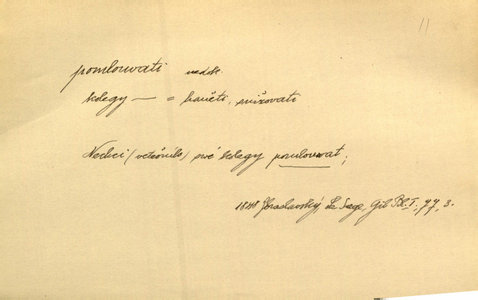 11
pomlouvati nedok.
kolegy — = haněti, snižovati
Nechci (                ) své kolegy pomlouvat;
1848        Le Sage, Gil Bl. I, 77, 3.